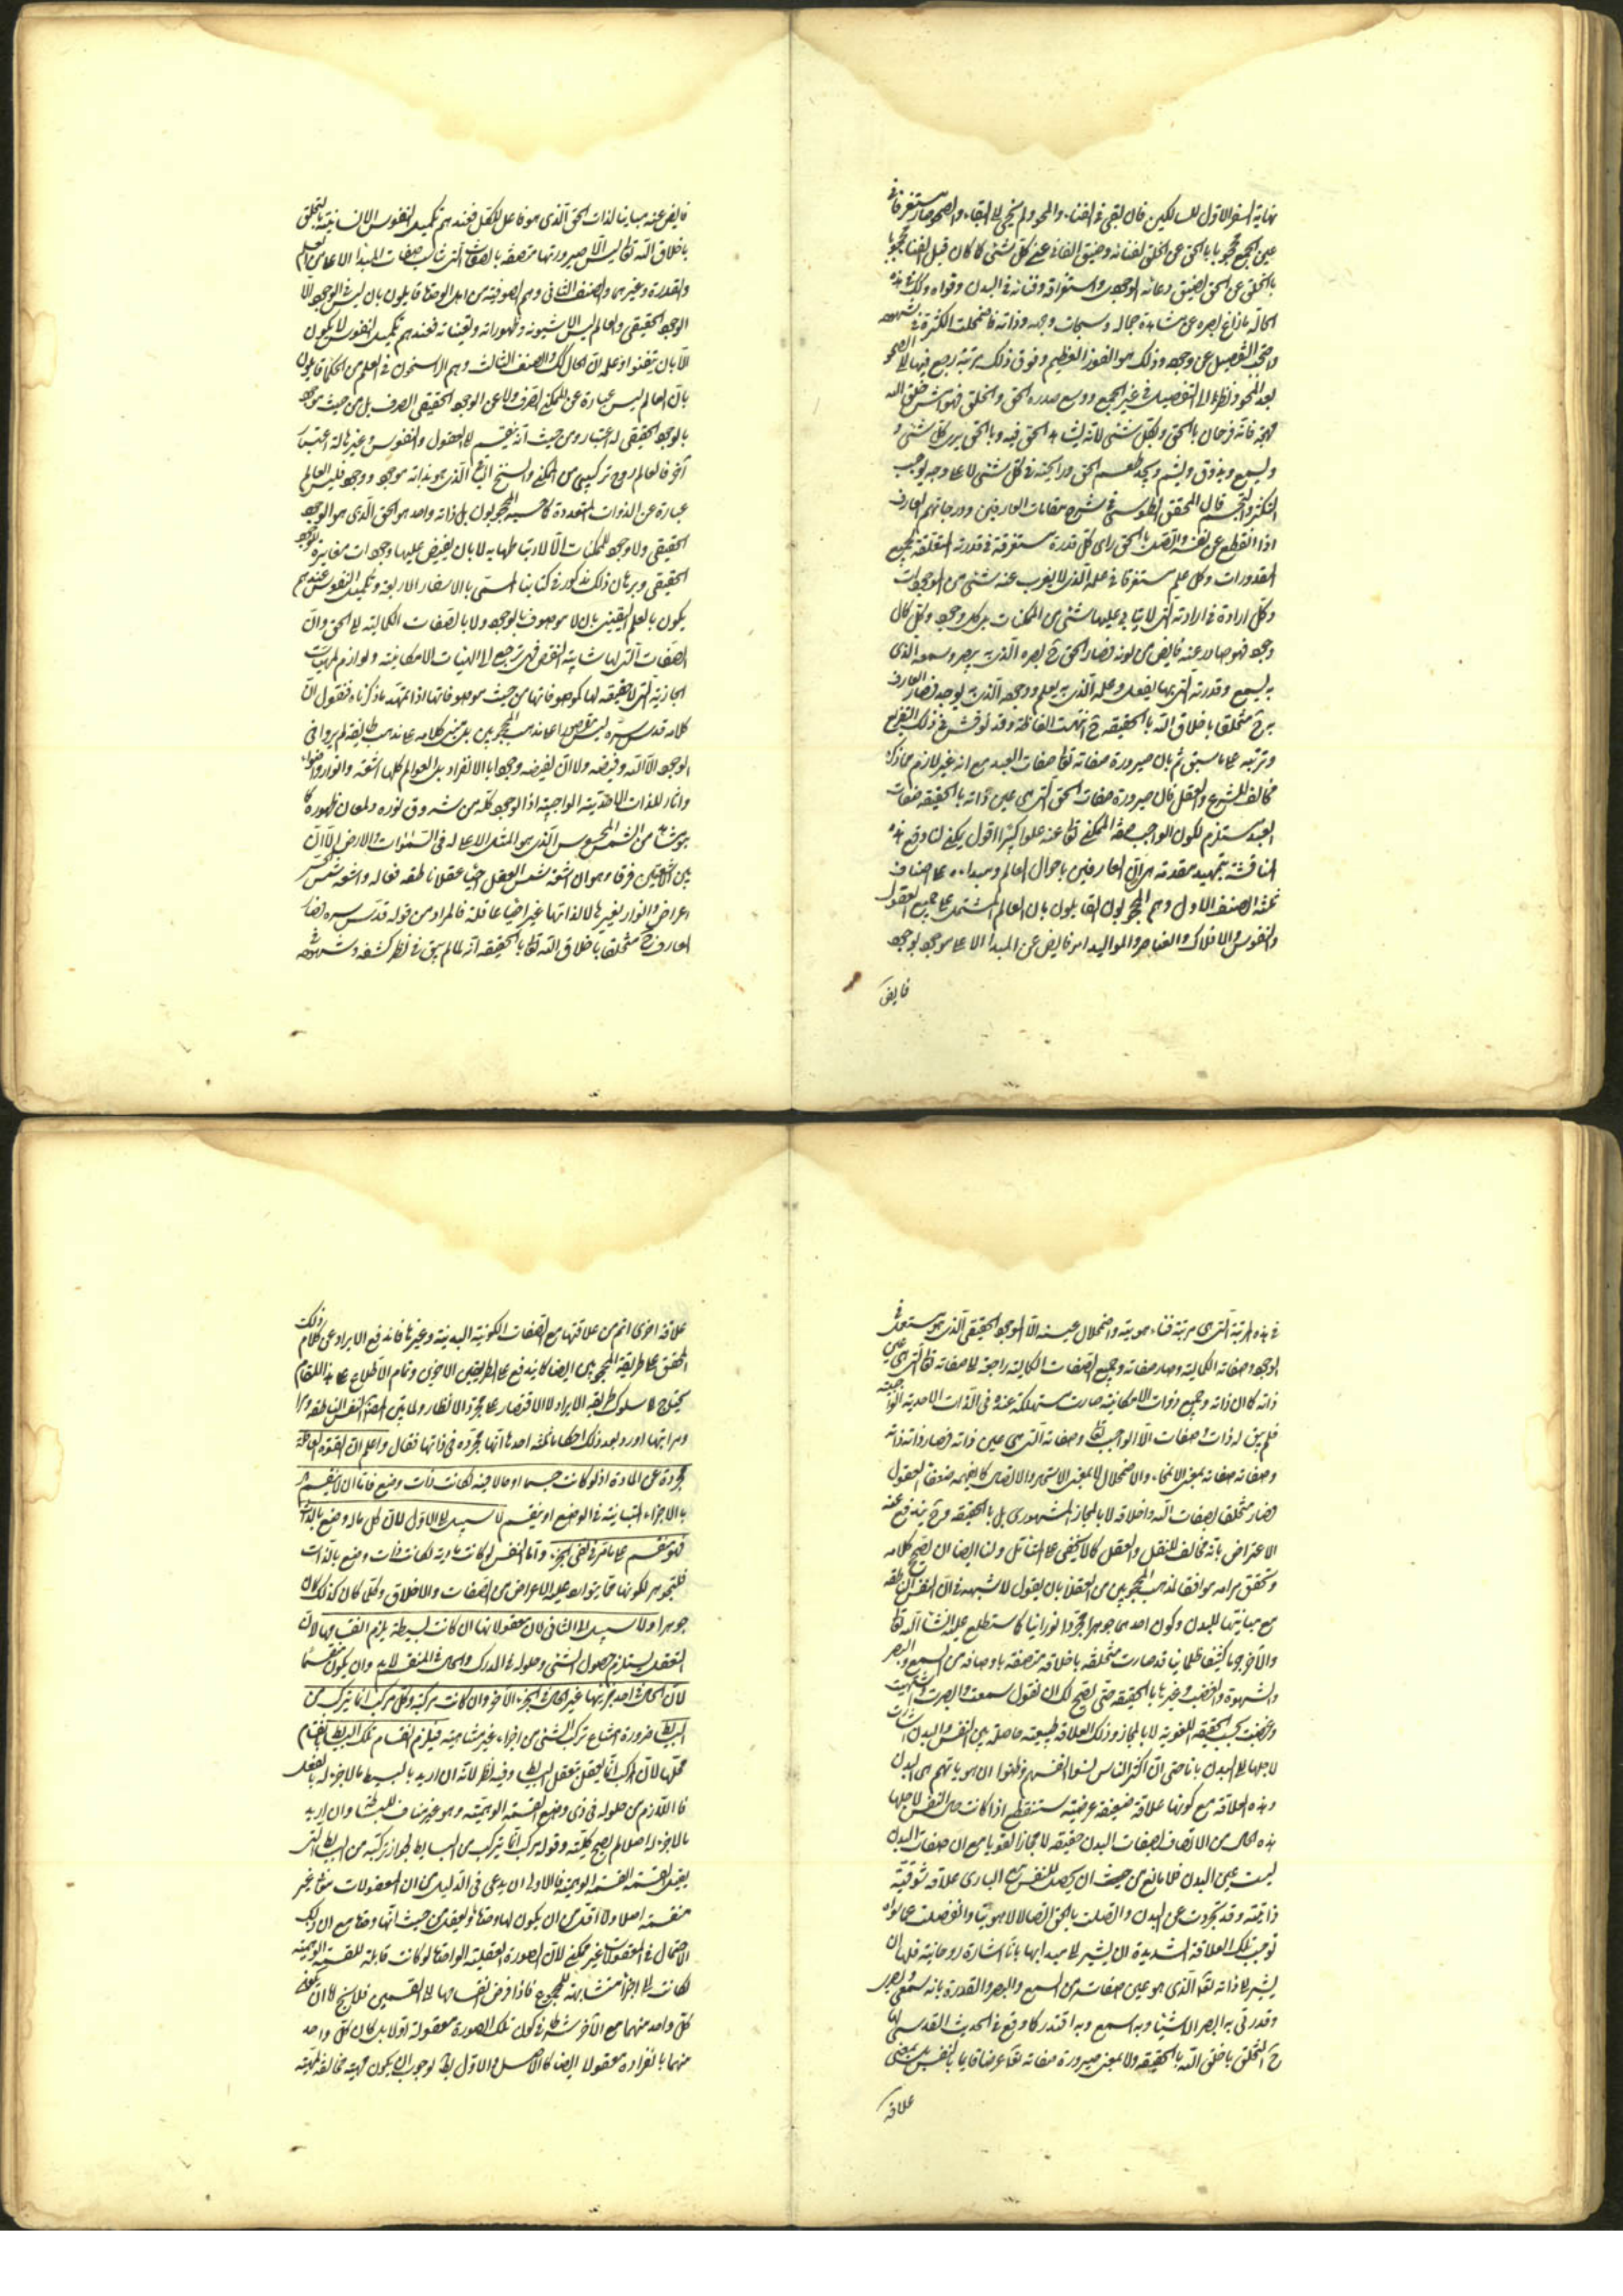 نهاية السفر الاول للسالكين فان بقى فى الفناء والمحو ولم يجئ الى البقاء والصحو صار مستغرقا فى
عين الجمع محجوبا بالحق عن الخلق لفنائه وضيق الفانى عن كل شئ كما كان قبل الفناء محجوبا
بالخلق عن الحق لضيق وعائه الوجودى واستغراقه وفنائه فى البدن وقواه وكذلك فى هذه
الحالة ما زاغ بصره عن مشاهدة جماله وسبحات وجهه وذاته فاضمحلت الكثرة فى شهوده
واحتجب التفصيل عن وجوده وذلك هو الفوز العظيم وفوق ذلك مرتبة يرجع فيها الى الصحو
بعد المحو ونظر الى التفصيل فى عين الجمع ووسع صدره الحق والخلق فهو اشرف خلق الله
بهجة فانه فرحان بالحق وبكل شئ لانه يشاهد الحق فيه وبالحق يرى كل شئ و
ويسمع ويذوق ويشم ويجد طعم الحق ورايحته فى كل شئ لا على وجه يوجب
التكثر والتجسم قال المحقق الطوسى فى شرح مقامات العارفين ودرجاتهم العارف
اذا انقطع عن نفسه واتصل بالحق راى كل قدرة مستغرقة فى قدرته المتعلقة بجميع
المقدورات وكل علم مستغرقا فى علمه الذى لا يعزب عنه شئ من الموجودات
وكل ارادة فى ارادته التى لا يتابى عليها شئ من الممكنات بل كل وجود وكل كمال
وجود فهو صادر عنه فايض من لدنه فصار الحق ح بصره الذى به يبصر وسمعه الذى
به يسمع وقدرته التى بها يفعل وعلمه الذى به يعلم ووجوده الذى به يوجد فصار العارف
ح متخلقا باخلاق الله بالحقيقة ح انتهت الفاظه وقد نوقش فى ذلك التفريع
وترتبه على ما سبق ثم بان صيرورة صفاته تعالى صفات العبد مع انه غير لازم مما ذكره
مخالف للشرع والعقل فان صيرورة صفات الحق التى هى عين ذاته بالحقيقة صفات
العبد مستلزم لكون الواجب صفة الممكن تعالى عنه علوا كبيرا اقول يمكن لنا دفع هذه
المناقشة بتمهيد مقدمة هى ان العارفين باحوال العالم ومبداه على اصناف
ثلثة الصنف الاول وهم المحجوبون القايلون بان العالم المشتمل على جميع العقول
والنفوس والافلاك والعناصر والمواليد امر فايض عن المبدا الاعلى موجود بوجود
فايض
فايض عنه مباينا لذات الحق الذى هو فاعل للكل فعندهم تكميل النفوس الانسانية بالتخلق
باخلاق الله تعالى ليس الا صيرورتها متصفة بالصفات التى تناسب صفات المبدا الاعلى من العلم
والقدرة وغيرهما والصنف الثانى وهم الصوفية من اهل الوحدة قايلون بان ليس فى الوجود الا
الوجود الحقيقى والعالم ليس الا شيونه وظهوراته وتعيناته فعندهم تكميل النفوس لا يكون
الا بان تيقنوا وعلموا ان الحال كذلك والصنف الثالث وهم الراسخون فى العلم من الحكماء قايلون
بان العالم ليس عبارة عن الممكن الصرف ولا عن الوجود الحقيقى الصرف بل من حيث هو موجود
بالوجود الحقيقى له اعتبار ومن حيث انه ينقسم الى العقول والنفوس وغيرها له اعتبار
آخر فالعالم زوج تركيبى من الممكن والسنخ الباقى الذى هو بذاته موجود ووجود فليس العالم
عبارة عن الذوات المتعددة كما حسبه المحجوبون بل ذاته واحد هو الحق الذى هو الوجود
الحقيقى ولا وجود للممكنات الا لارتباطها به لا بان يفيض عليها وجودات مغايرة للوجود
الحقيقى وبرهان ذلك مذكور فى كتابنا المسمى بالاسفار الاربعة وتكميل النفوس عندهم
يكون بالعلم اليقينى بان لا موصوف بالوجود ولا بالصفات الكمالية الا الحق وان
الصفات التى لها شائبة النقص فهى ترجع الى الهيئات الامكانية ولوازم المهيات
المجازية التى لا حقيقة لها كوجوداتها من حيث هو هو فانها اذا تمهد ما ذكرناه فنقول ان
كلامه قدس سره ليس مقصورا على مذهب المحجوبين بل مبنى كلامه على مذهب طايفة لم يروا فى
الوجود الا الله وفيضه ولا ان لفيضه وجودا بالانفراد بل العوالم كلها اشعة وانوار واضواء
وآثار للذات الاحدية الواجبية اذ الوجود كله من شروق نوره ولمعان ظهوره كما
يشاهد من الشمس المحسوس الذى هو المثل الاعلى له فى السموات والارض الا ان
بين الاشعتين فرقا وهو ان اشعة شمس العقل احياء عقلاء ناطقة فعالة واشعة شمس الحس
اعراض وانوار لغيرها لا لذاتها غير احياء عاقلة فالمراد من قوله قدس سره فصار
العارف ح متخلقا باخلاق الله تعالى بالحقيقة انه لما لم يبق فى نظر كشفه وشهوده
فى هذه المرتبة التى هى مرتبة فناء هويته واضمحلال عينه الا الوجود الحقيقى الذى هو مستعمل فى
الوجود وصفاته الكمالية وصار صفاته وجميع الصفات الكمالية راجعة الى صفاته تعالى التى هى عين
ذاته كما ان ذاته وجميع ذوات الامكانية صارت مستهلكة عنده فى الذات الاحدية الواجبية
فلم يبق له ذات وصفات الا الواجب تعالى وصفاته التى هى عين ذاته فصار ذاته ذاته
وصفاته صفاته بمعنى الانمحاء والاضمحلال لا بمعنى الاستمرار والاتصاف كما يفهمه ضعفاء العقول
فصار متخلقا بصفات الله واخلاقه لا بالمجاز المشهورى بل بالحقيقة فح يندفع عنه
الاعتراض بانه مخالف للنقل والعقل كما لا يخفى على المتامل ولنا ايضا ان نصحح كلامه
ونحقق مرامه موافقا لمذهب المحجوبين من العقلاء بان نقول لا شبهة فى ان النفس الناطقة
مع مباينتها للبدن وكون احدهما جوهرا مجردا نورانيا كما ستطلع عليه ان شاء الله تعالى
والآخر جرما كثيفا ظلمانيا قد صارت متخلقة باخلاقه متصفة باوصافه من السمع والبصر
والشهوة والغضب وغيرها بالحقيقة حتى يصح لك ان تقول سمعت وابصرت واشتهيت
وغضبت بحسب الحقيقة اللغوية لا بالمجاز وذلك العلاقة طبيعية حاصلة بين النفس والبدن اشارت
لاجلها الى البدن بانا حتى ان اكثر الناس نسوا انفسهم وظنوا ان هوياتهم هى البدن
وهذه العلاقة مع كونها علاقة ضعيفة عرضية ستنقطع اذا كانت حال النفس لاجلها
هذه الحال من الاتصاف بصفات البدن حقيقة لا مجازا لغويا مع ان صفات البدن
ليست عين البدن فلا مانع من حيث ان يحصل للنفس مع البارى علاقة شوقية
ذاتية وقد تجردت عن البدن واتصلت بالحق اتصالا لاهوتيا وانفصلت عما سواه
توجب تلك العلاقة الشديدة ان يشير الى مبدئها بانا اشارة روحانية فلها ان
يشير الى ذاته تعالى الذى هو عين صفاته من السمع والبصر والقدرة بانه سمعى وبصرى
وقدرتى به ابصر الاشياء وبه اسمع وبه اقتدر كما وقع فى الحديث القدسى فاذا
ح التخلق باخلاق الله بالحقيقة ولا بمعنى صيرورة صفاته تعالى عرضا قايما بالنفس بل بمعنى
علاقة
علاقة اخرى اتم من علاقتها مع الصفات الكونية البدنية وغيرها فاندفع الايراد عن كلام ذلك
المحقق على طريقة المحجوبين ايضا كما يندفع على الطريقين الاخرين وتمام الاطلاع على هذا المقام
يحتاج الى سلوك طريقة الابرار لا الاقتصار على مجرد الانظار ولما بين المصنف النفس الناطقة وقواها
ومراتبها اورد بعد ذلك احكاما ثلثة احدها انها مجردة فى ذاتها فقال واعلم ان القوة العاقلة
مجردة عن المادة اذ لو كانت جسما او حالا فيه لكانت ذات وضع فاما ان لا ينقسم
بالاجزاء المتباينة فى الوضع او ينقسم لا سبيل الى الاول لان كل ما له وضع بالذات
فهو منقسم على ما مر فى نفى الجزء واما النفس لو كانت مادية لكانت ذات وضع بالذات
فلتجوهر لكونها مما يتوارد عليه الاعراض من الصفات والاخلاق وكلما كان كذلك كان
جوهرا ولا سبيل الى الثانى لان معقولاتها ان كانت بسيطة يلزم انقسامها لان
التعقل يستلزم حصول الشئ وحلوله فى المدرك والحال فى المنقسم لا بد وان يكون منقسما
لان الحال فى احد جزئيها غير الحال فى الجزء الآخر وان كانت مركبة وكل مركب انما يتركب من
البسايط ضرورة امتناع تركب الشئ من اجزاء غير متناهية فيلزم انقسام تلك البسايط بانقسام
محلها لان المركب انما يعقل بتعقل البسايط وفيه نظر لانه ان اريد بالبسيط ما لا جزء له بالفعل
فاللازم من حلوله فى ذى وضع القسمة الوهمية وهو غير مناف للبساطة وان اريد
ما لا جزء له اصلا لم يصح كليته وقوله مركب انما يتركب من البسايط لجواز تركبه من البسايط التى
يقبل القسمة الوهمية فالاولى ان يدعى فى الدليل من ان المعقولات منها غير
منقسمة اصلا ولا اقل من ان يكون لها وحدة وتعقل من حيث انها وحدة مع ان ذلك
الاحتمال فى المعقولات غير ممكن لان الصورة العقلية الواحدة لو كانت قابلة للقسمة الوهمية
لكانت الى اجزاء متشابهة للمجموع فاذا فرض انقسامها الى القسمين فلا يخ اما ان يكون
كل واحد منهما مع الآخر شرطا فى كون تلك الصورة معقولة اولا بل كان كل واحد
منهما بانفراده معقولا ايضا كالاصل فالاول بط لوجوب ان يكون مهية مخالفة لمهية